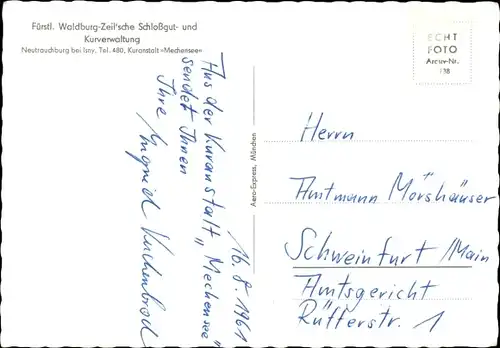 Fürstl. Waldburg-Zeil'sche Schloßgut- und
Kurverwaltung
Neutrauchburg bei Isny, Tel. 480, Kuranstalt »Mechensee«
ECHT
FOTO
Archiv-Nr.
138
16.8.1961
Aus der Kuranstalt „Mechensee"
sendet Ihnen
Ihre Ingrid Kuchenbrod
Aero-Express, München
Herrn
Amtmann Mörshäuser
Schweinfurt/Main
Amtsgericht
Rüfferstr. 1